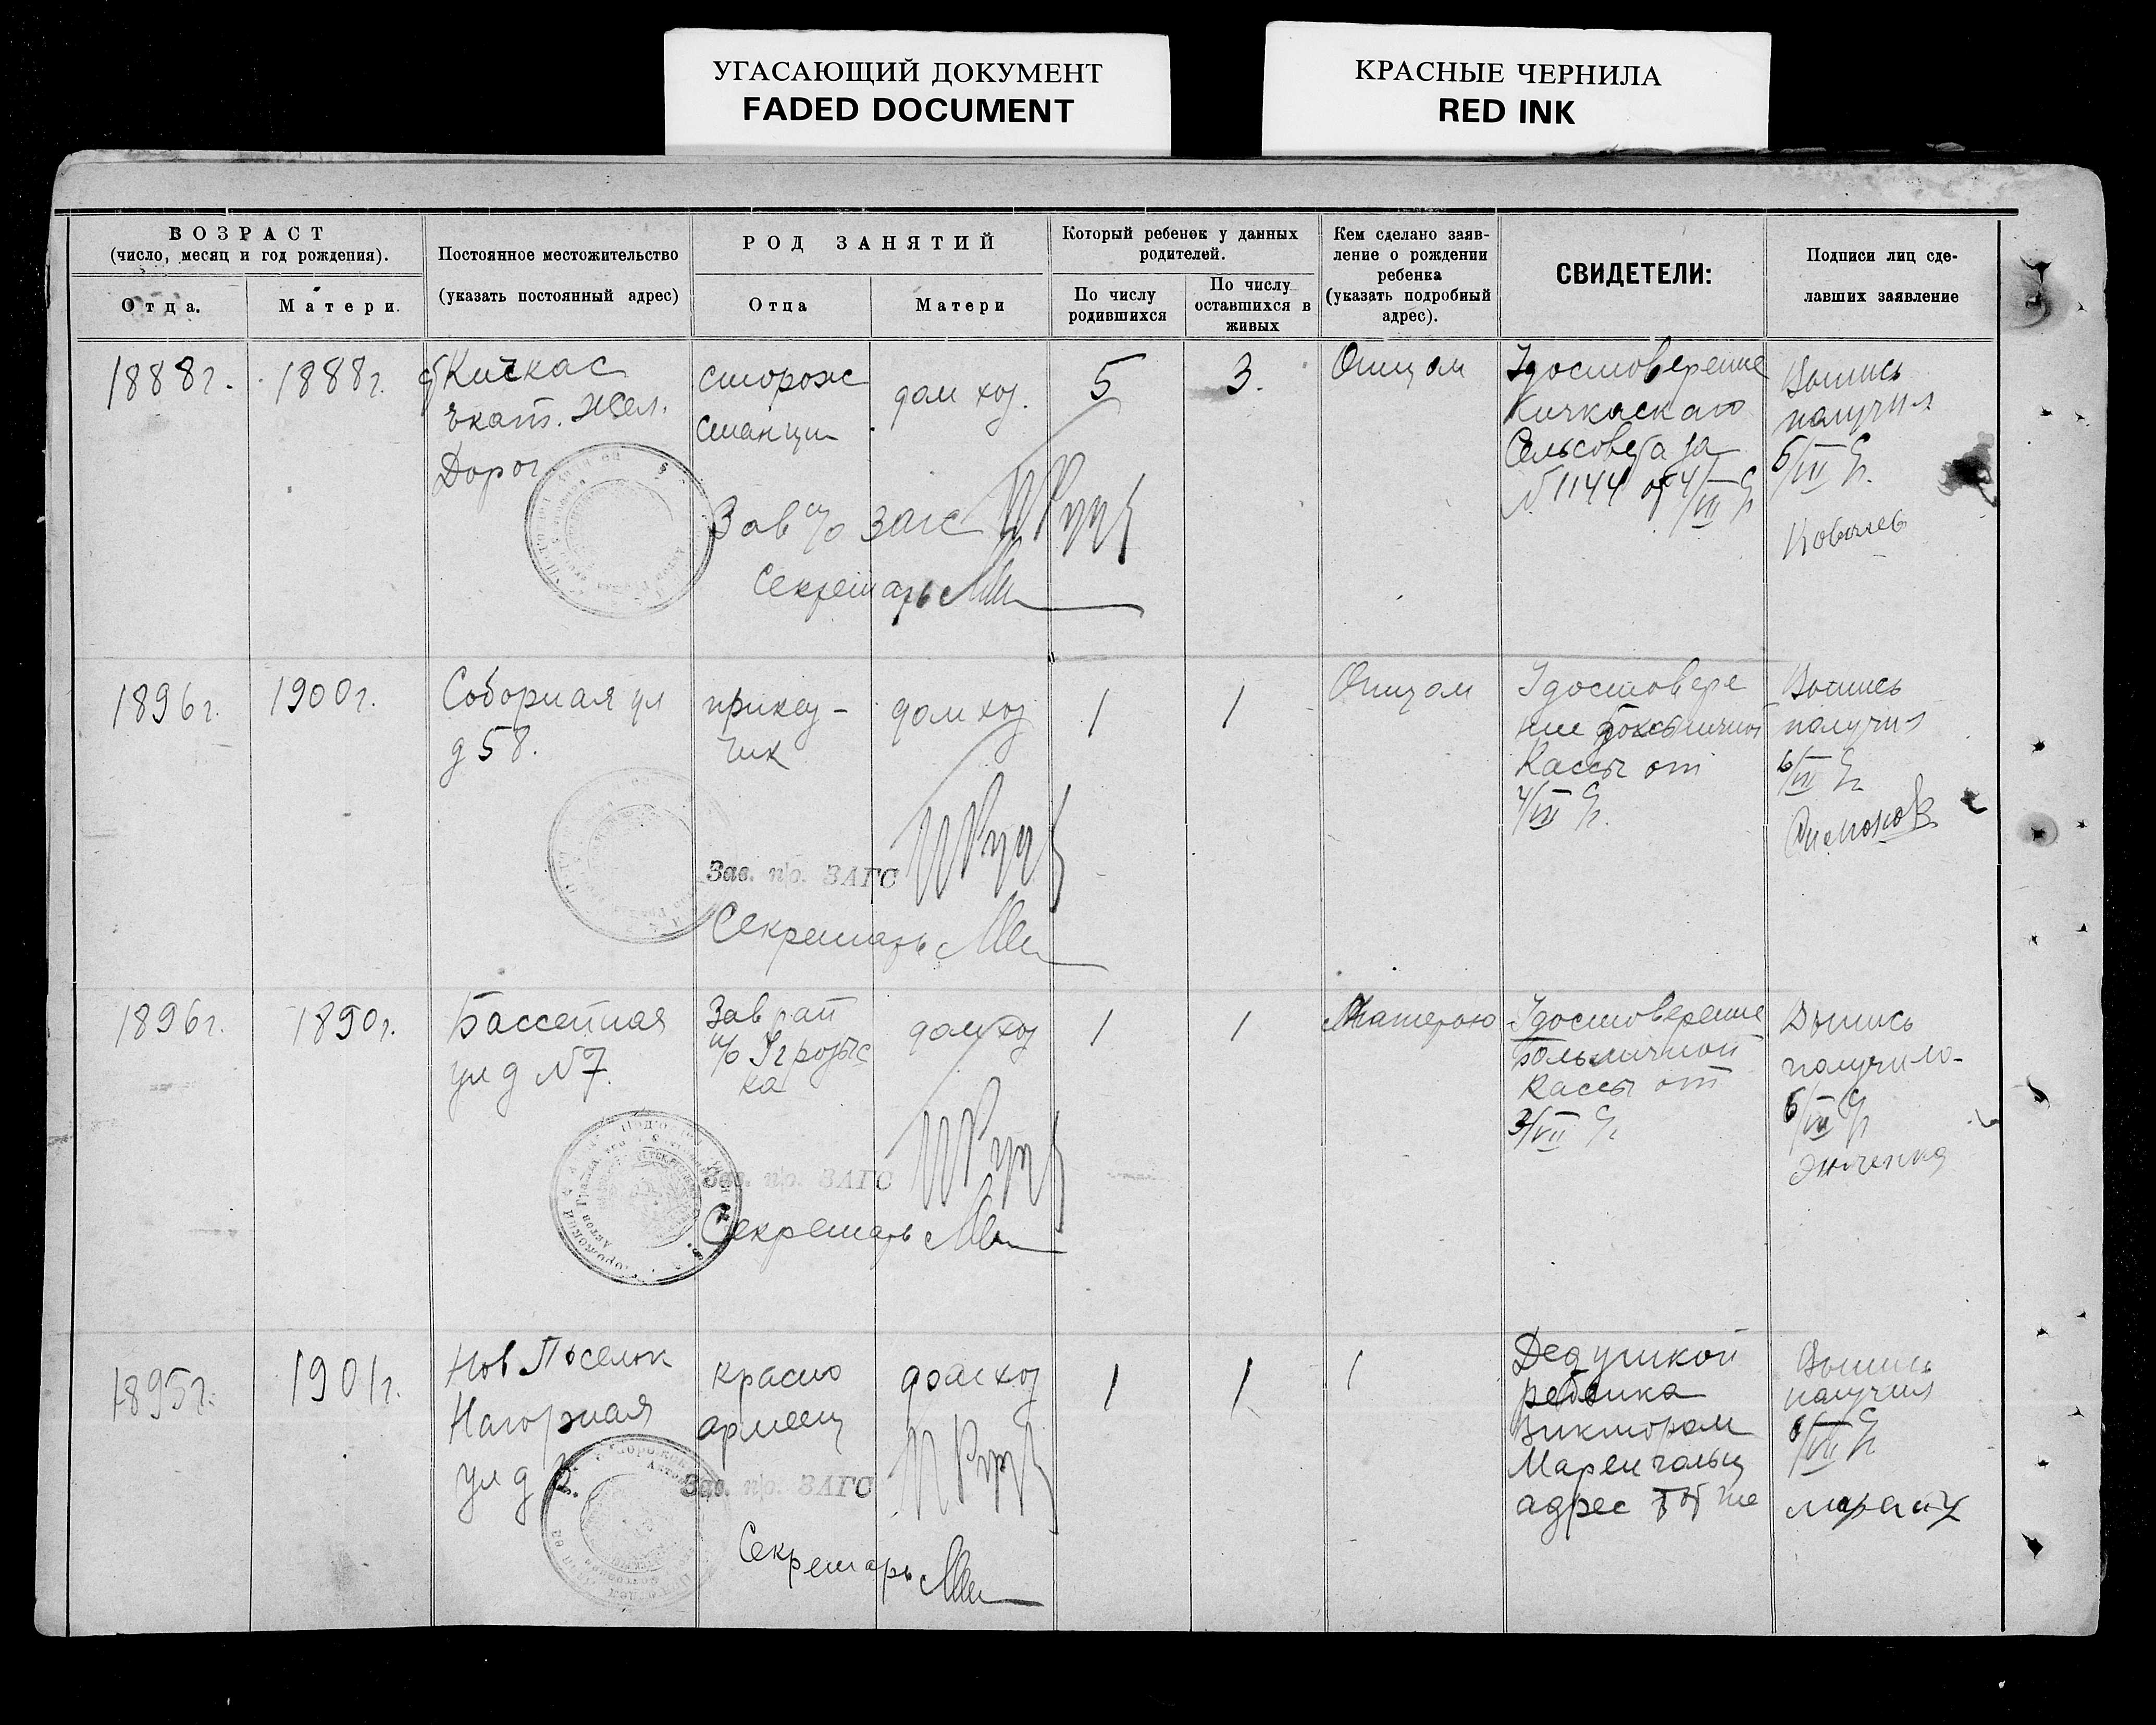 УГАСАЮЩИЙ ДОКУМЕНТ
FADED DOCUMENT
КРАСНЫЕ ЧЕРНИЛА
RED INK
ВОЗРАСТ
(число, месяц и год рождения).
Отца.
Матери.
Постоянное местожительство
(указать постоянный адрес)
РОД ЗАНЯТИЙ
Отца
Матери
Который ребенок у данных
родителей.
По числу
родившихся
По числу
оставшихся в
живых
Кем сделано заяв-
ление о рождении
ребенка
(указать подробный
адрес).
СВИДЕТЕЛИ:
Подписи лиц сде-
лавших заявление
1888г.
1888г.
Кичкас
Екат. Жел.
Дорог
сторож
станции
дом хоз.
5
3.
Отцом
Удостоверение
Кичкаскаго
Сельсовета за
№1144 от 4/VII
Выпись
получил
6/VII
Ковалев
Зав п/о ЗАГС
Секретарь
1896г.
1900г.
Соборная ул
д 58.
прикаु-
чик
дом хоз
1
1
Отцом
Удостовере
ние больничной
Кассы от
4/VII
Выпись
получил
6/VII
Симонов
Зав. п/о. ЗАГС
Секретарь
1896г.
1890г.
Бассейная
ул д №7.
Зав рай
п/о Угрозыс
ка
дом хоз
1
1
Матерью
Удостоверение
Больничной
Кассы от
3/VII
Выпись
получила
6/VII
Зав. п/о. ЗАГС
Секретарь
1895г.
1901г.
Нов Поселок
Нагорная
ул д
красно
армеец
дом хоз
1
1
Дедушкой
ребенка
Виктором
Маренгольц
адрес тот же
Выпись
получил
6/VII
Зав. п/о. ЗАГС
Секретарь